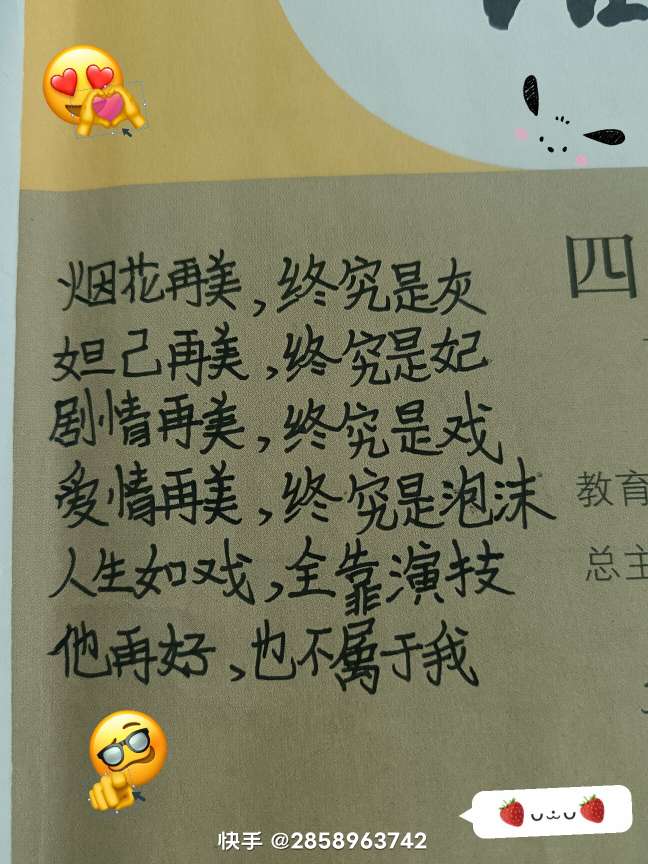 四
烟花再美,终究是灰
妲己再美,终究是妃
剧情再美,终究是戏
爱情再美,终究是泡沫
教育
人生如戏,全靠演技
总主
他再好,也不属于我
快手 @2858963742